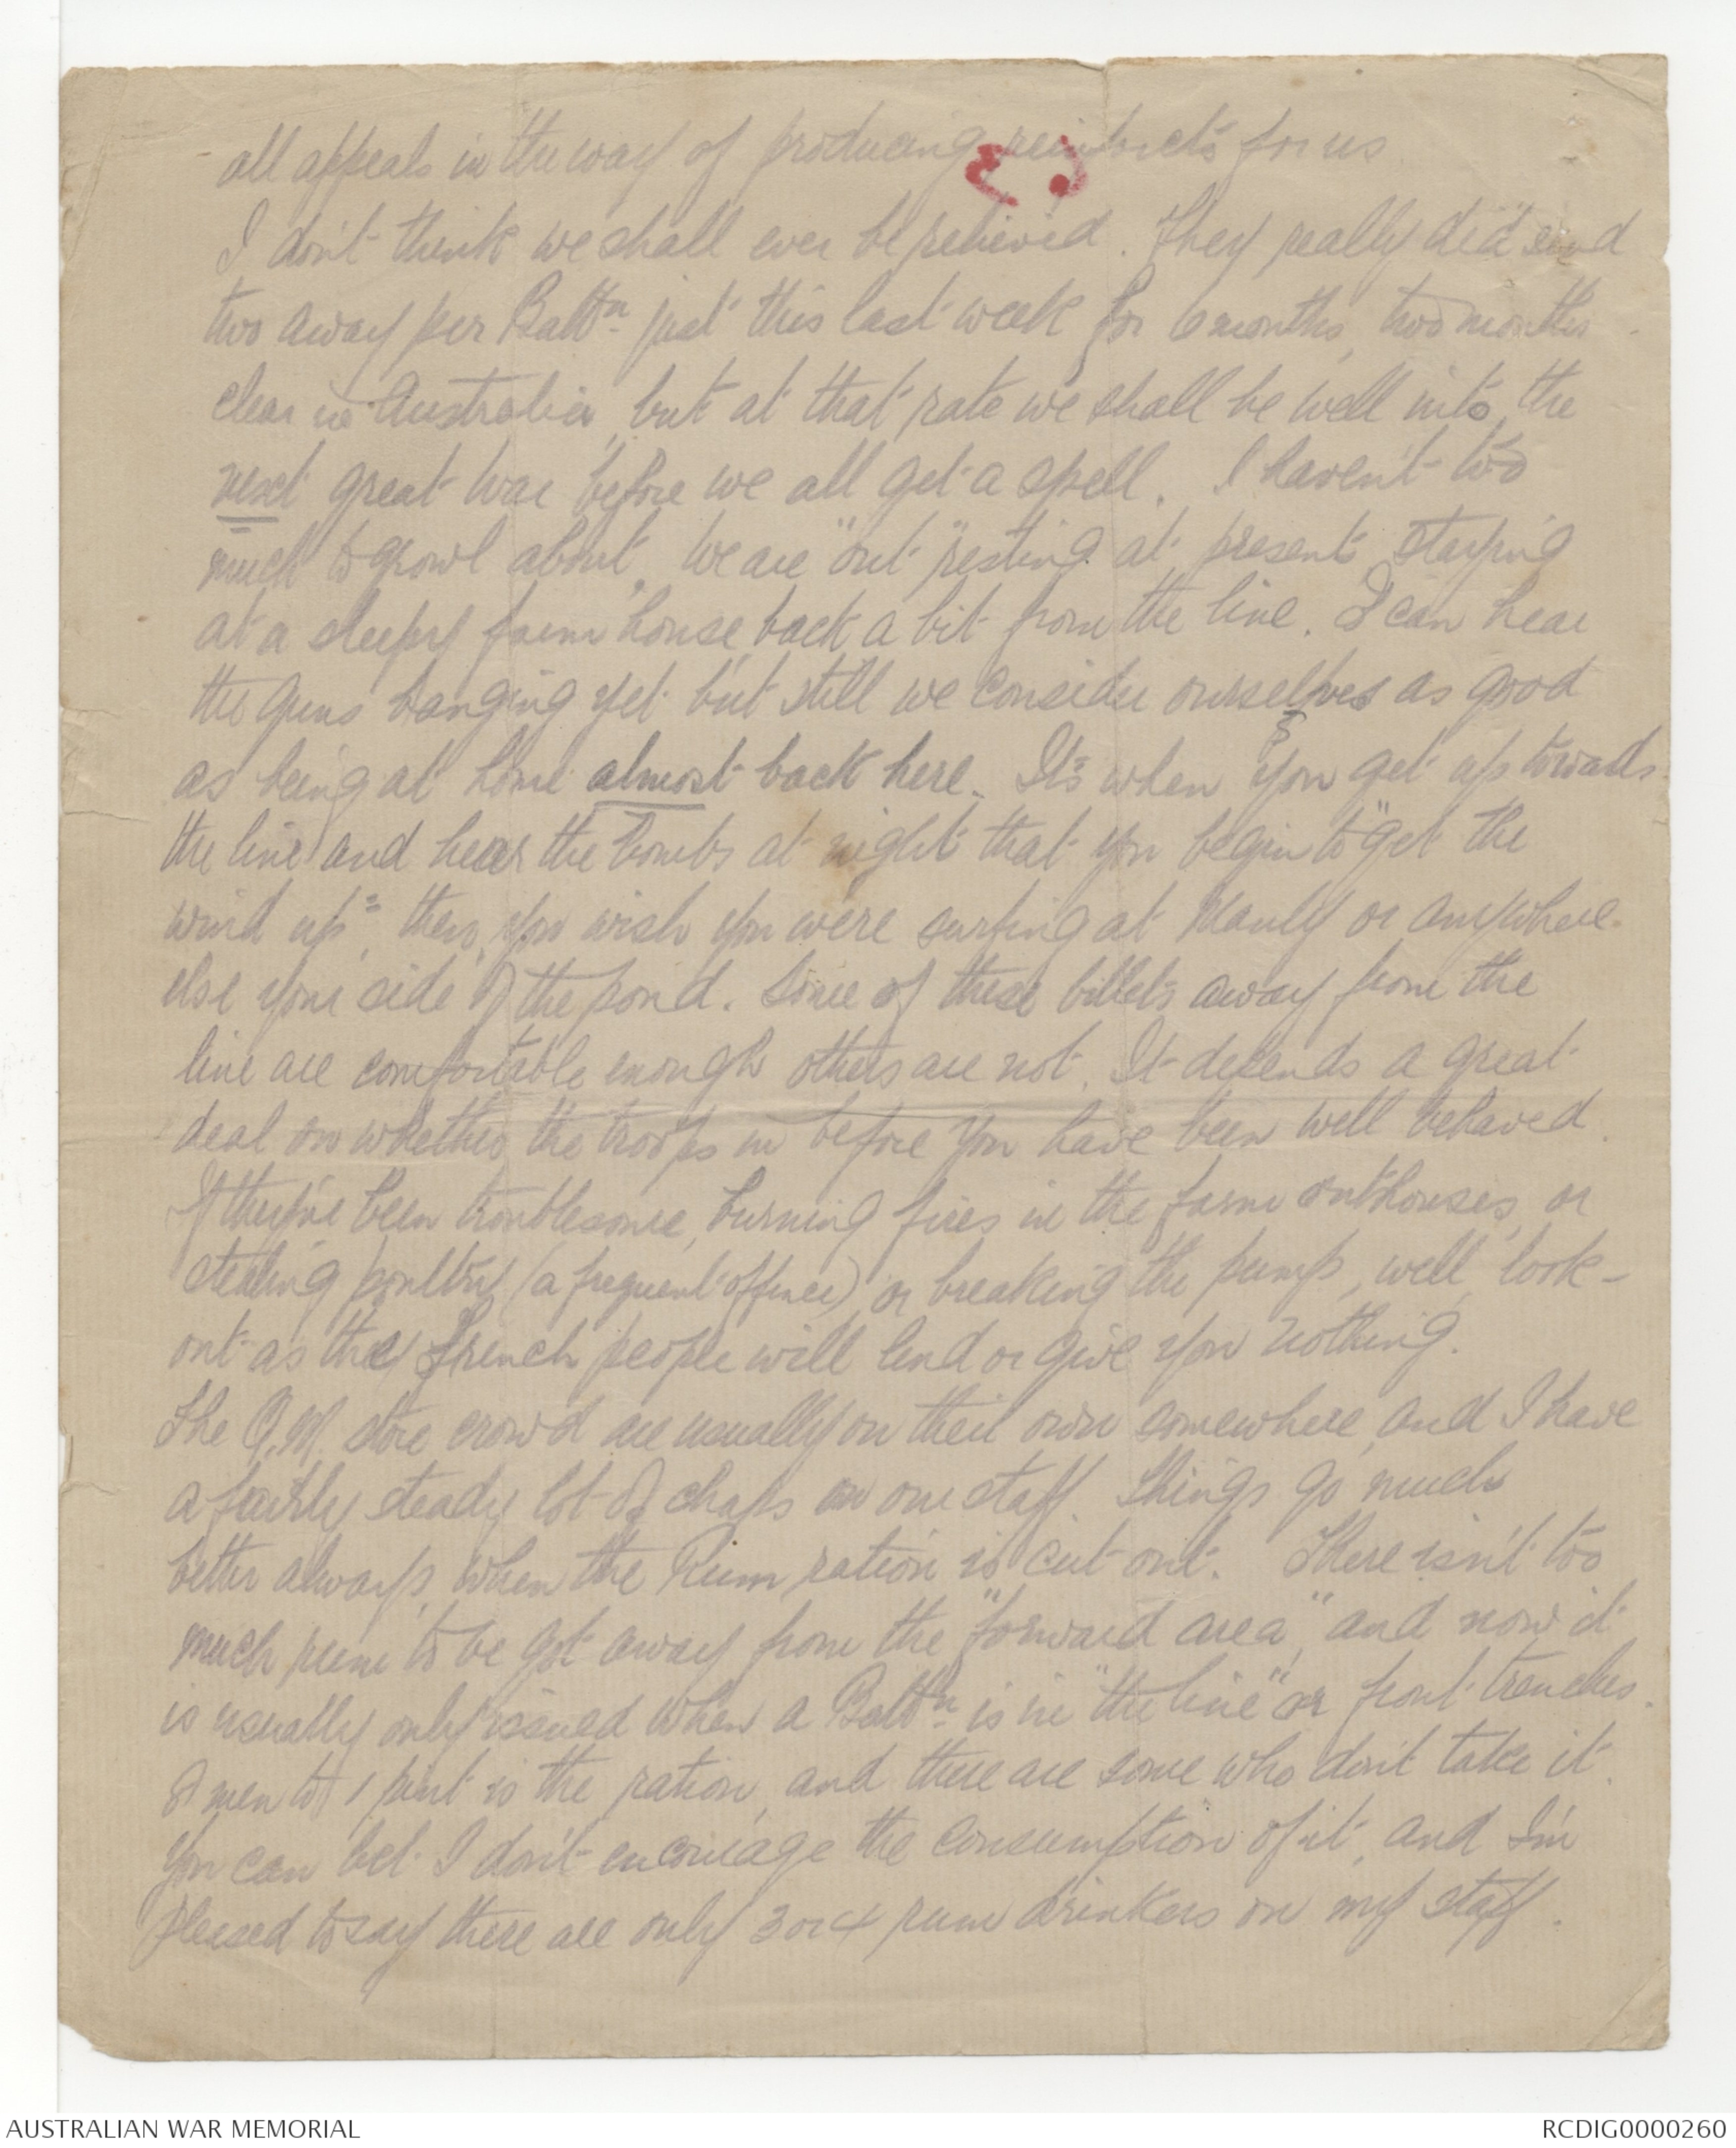 all appeals in the way of producing reinforcts for us
I don't think we shall ever be relieved. They really did send
two away per Battn just this last week for 6 months, two months
clear in Australia, but at that rate we shall be well into the
next great war before we all get a spell. I haven't too
much to growl about. We are "out" resting at present staying
at a sleepy farm house, back a bit from the line. I can hear
the guns banging yet but still we consider ourselves as good
as being at home almost back here. It's when you get up towards
the line and hear the bombs at night that you begin to "get the
wind up", then you wish you were surfing at Manly or anywhere
else your side of the pond. Some of these billets away from the
line are comfortable enough others are not. It depends a great
deal on whether the troops in before you have been well behaved.
If they've been troublesome, burning fires in the farm outhouses, or
stealing poultry (a frequent offence) or breaking the pump, well, look-
out as the French people will lend or give you nothing.
The Q.M. store crowd are usually on their own somewhere, and I have
a fairly steady lot of chaps on our staff. Things go much
better always, when the Rum ration is cut out. There isn't too
much rum to be got away from the "forward area", and now it
is usually only issued when a Battn is in "the line" or front trenches.
men to 1 pint is the ration, and there are some who don't take it.
You can bet I don't encourage the consumption of it, and I'm
pleased to say there are only 3 or 4 rum drinkers on my staff.
AUSTRALIAN WAR MEMORIAL
RCDIG0000260